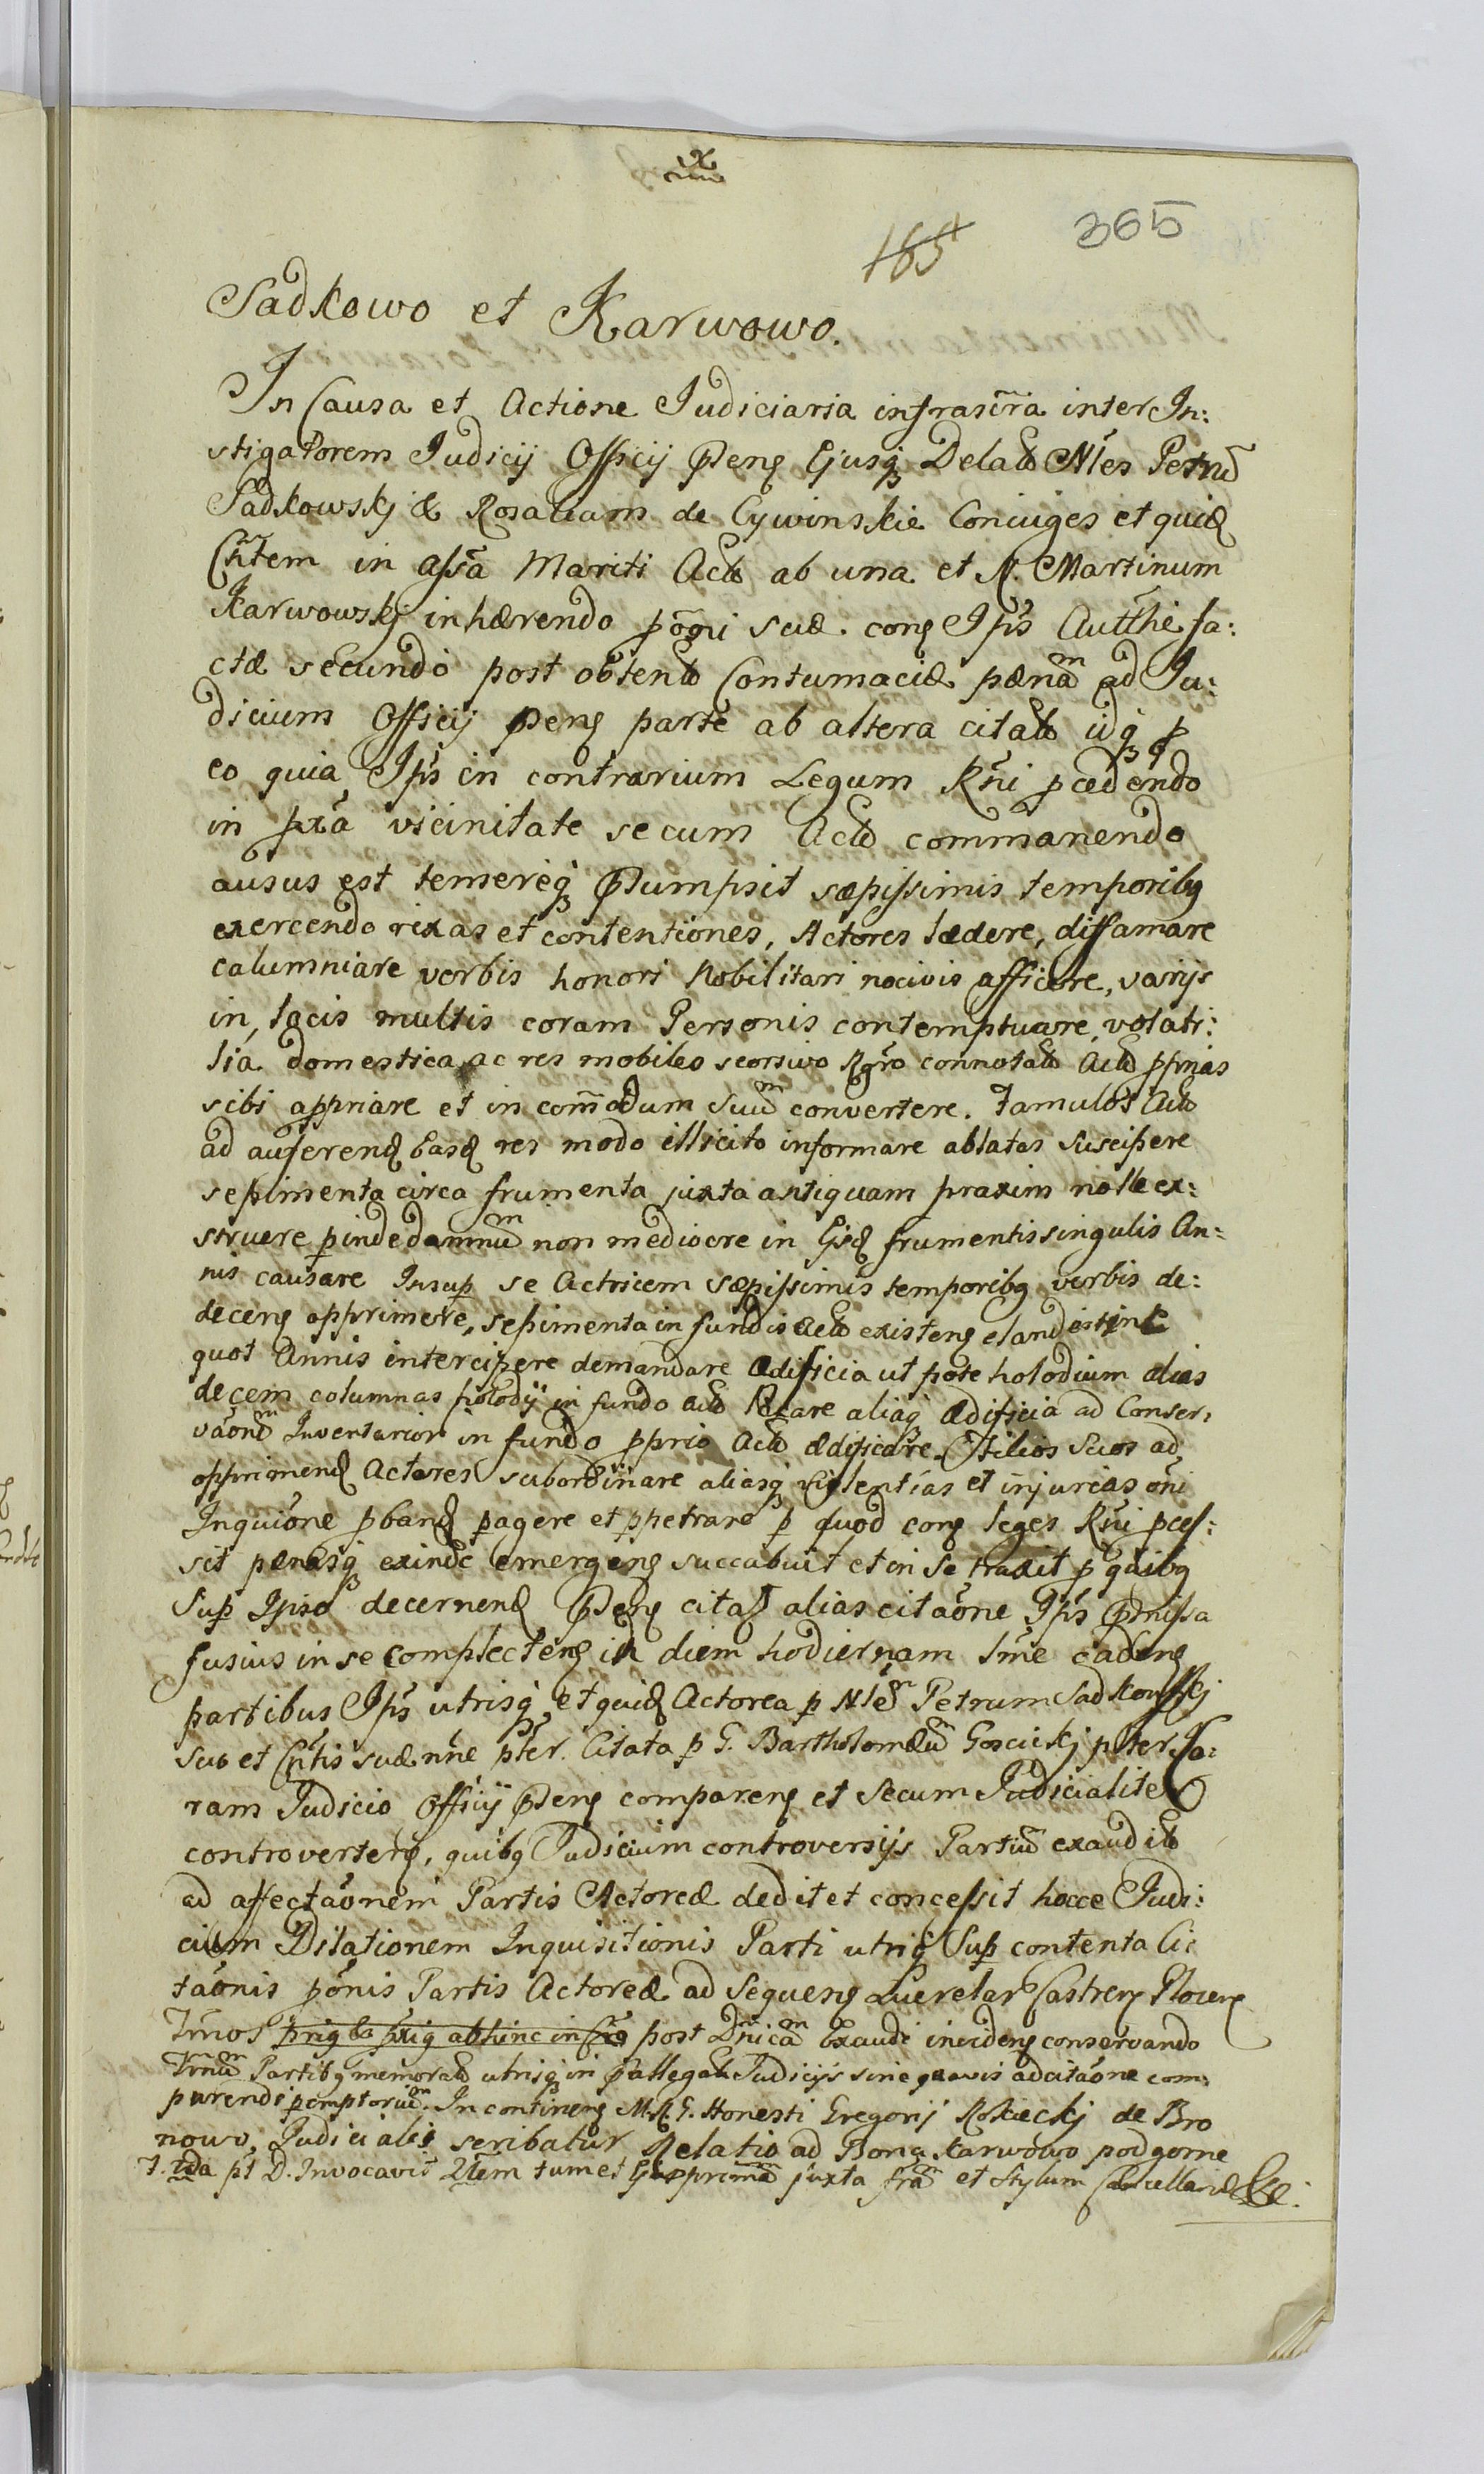 165
365
Sadkowo et Karwowo.
In Causa et Actione Judiciaria infrascr̃a inter In:
stigatorem Judicij Officij Pteng Ejusq Delat Nles Petrũ
Sadkowskj & Rosaliam de Cywinskie Coniuges et quid
Cñtem in assã Mariti Act ab una et N. Martinum
Karwowskj inhærendo põni suæ cong Ips Autthẽ fa:
ctæ secundo post obtent Contumaciæ pænãm ad Ju:
dicium Officij pteng parte ab altera citat idq p
eo quia Ips in contrarium Legum Rñi pcedendo
in pxa vicinitate secum Act commanendo
ausus est temereq Ptumpsit sæpissimis temporibq
exercendo rixas et contentiones, Actores lædere, diffamare
calumniare verbis honori Nobilitari nocivis afficere, varijs
in, locis multis coram Personis contemptuare, volati:
lia domestica ac res mobiles seorsivo Rgro connotat Act ppriãs
sibi appriare et in com̃odum suũm convertere. Famulos Act
ad auferend Easd res modo illicito informare ablatas suscipere
sepimenta circa frumenta juxta antiquam praxim nolle ex:
struere pinde damnũm non mediocre in Eisd frumentis singulis An:
nis causare Insup se Actricem sæpissimis temporibq verbis de:
deceng opprimere, sepimenta in fundis Act existeng clandestine
quot Annis intercipere demandare Ædificia ut pote holodium alias
decem columnas holodij in fundo Act locare aliaq Ædificia ad Conser:
vãonem Inventarior in fundo pprio Act ædificare. Filios Suos ad
opprimend Actores subordinare aliasq violentias et injurias oñi
Inquiõne pband pagere et ppetrare p quod cong leges Rñi pces:
sit pænasq exinde emergeng succubuit et in se traxit p quibq
Sup Ipso decernend Pteng citat alias citãone Ips Pmissa
fusius in se complecteng in diem hodiernam lm̃e cadeng
partibus Ips utrisq et quid Actorea p Nlem Petrum Sadkowskj
suo et Cñtis suæ nñe pter. Citata p G. Bartholomæũm Goscickj pter Co:
ram Judicio Officij Pteng compareng et Secum Judicialiter
controverteng, quibq Judicium controversijs Partiũ exaudit
ad affectãonem Partis Actoreæ dedit et concessit hocce Judi:
cium Dilationem Inquisitionis Parti utriq Sup contenta Ci:
tãonis põnis Partis Actoreæ ad Sequeng Querelar Castreng Ploceng
Tm̃os post Dnicãm Exaudi incideng conservando
Tm̃um Partibq memorat utrisq in pallegat Judicijs sine quavis ad citãone com:
parendi pemptoriũm. In contineng M. R. G. Honesti Gregorij Rokickj de Bro
nowo, Judicialis scribatur Relatio ad Bona Karwowo podgorne
juxta frãm et Stylum Cancellariæ &c: